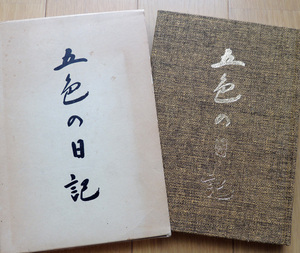 五色の日記
五色の日記